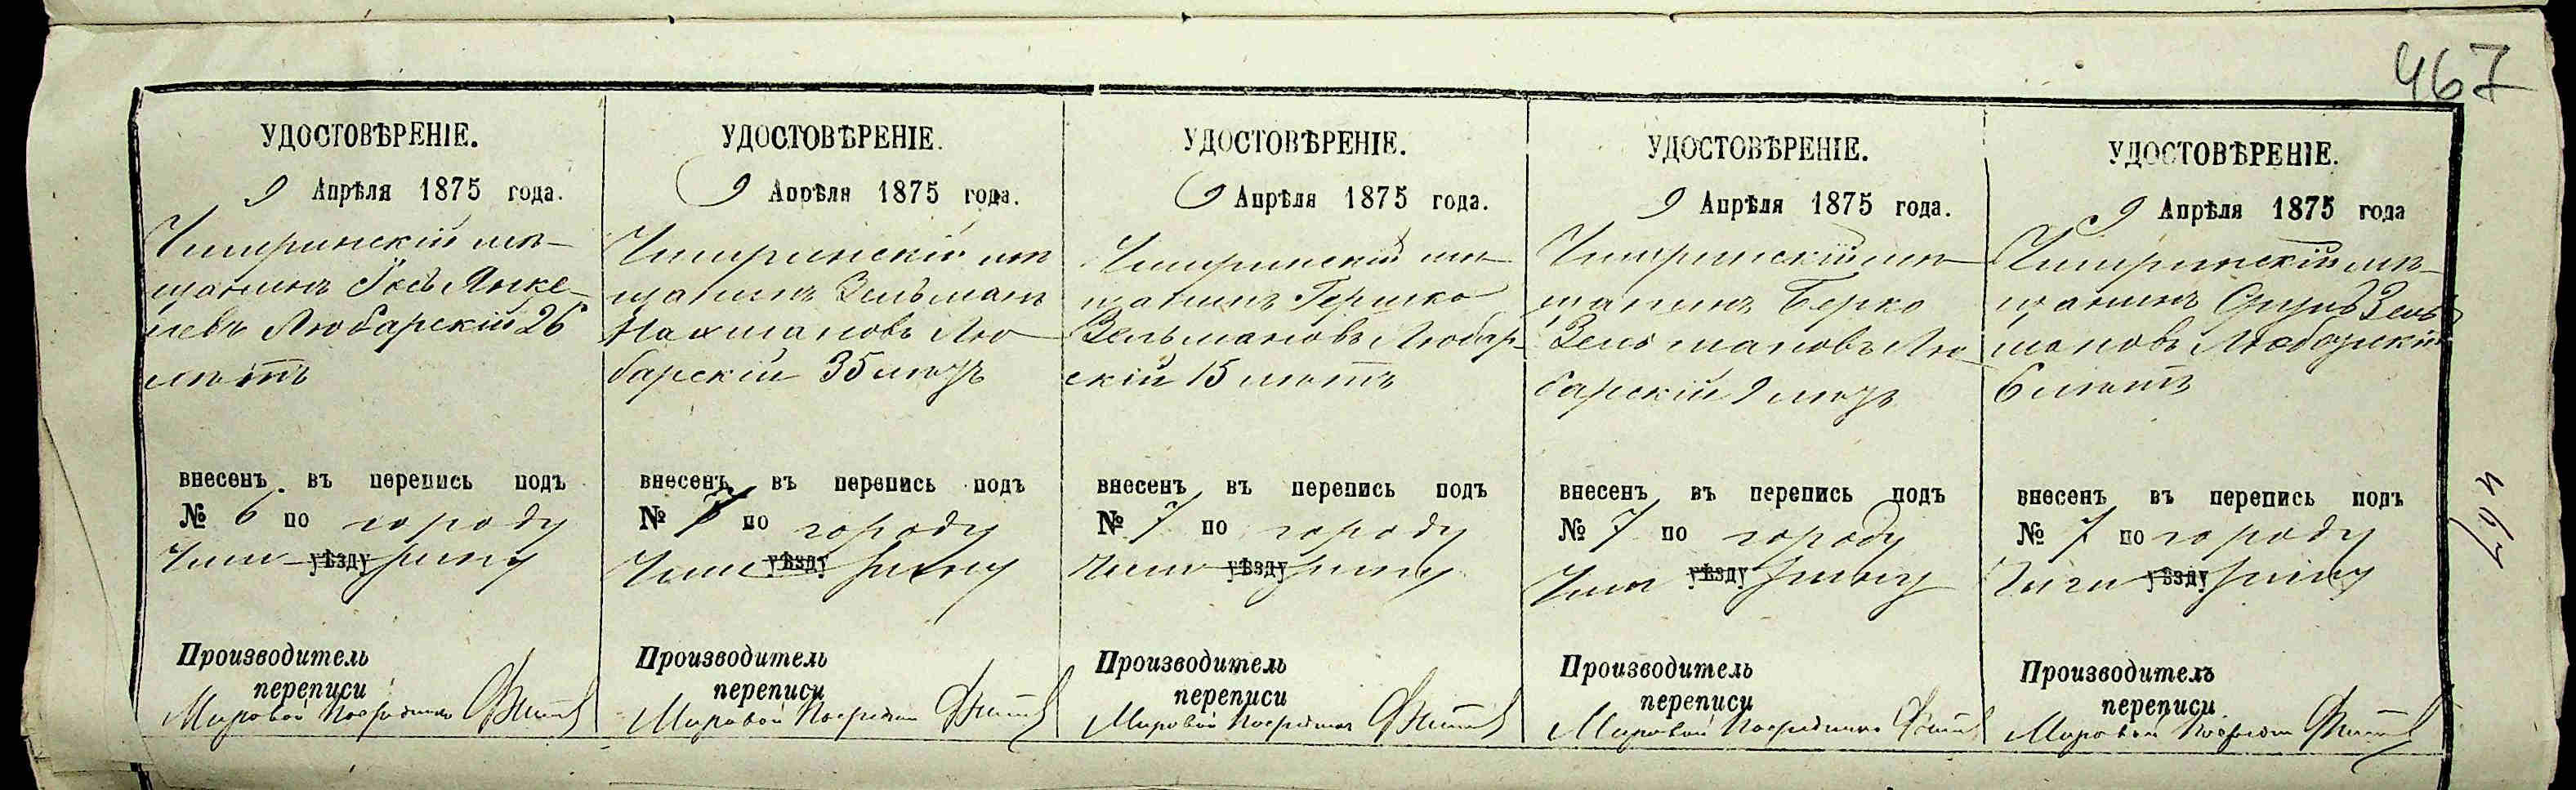 467
УДОСТОВѢРЕНІЕ.
9 Апрѣля 1875 года.
Чигиринскій мѣ-
щанинъ Іось Янке-
левъ Любарскій 26
лѣтъ
внесенъ въ перепись подъ
№ 6 по городу
Чиги- уѣзду рину
Производитель
переписи
Мировой Посредникъ
УДОСТОВѢРЕНІЕ.
9 Апрѣля 1875 года.
Чигиринскій мѣ
щанинъ Зельманъ
Нахмановъ Лю
барскій 35 лѣтъ
внесенъ въ перепись подъ
№ 7 по городу
Чиги уѣзду рину
Производитель
переписи
Мировой Посредникъ
УДОСТОВѢРЕНІЕ.
9 Апрѣля 1875 года.
Чигиринскій мѣ
щанинъ Гершко
Зельмановъ Любар-
скій 15 лѣтъ
внесенъ въ перепись подъ
№ 7 по городу
Чиги уѣзду рину
Производитель
переписи
Мировой Посредникъ
УДОСТОВѢРЕНІЕ.
9 Апрѣля 1875 года.
Чигиринскій мѣ
щанинъ Берко
Зельмановъ Лю
барскій 9 лѣтъ
внесенъ въ перепись подъ
№ 7 по городу
Чиги уѣзду рину
Производитель
переписи
Мировой Посредникъ
УДОСТОВѢРЕНІЕ.
9 Апрѣля 1875 года
Чигиринскій мѣ-
щанинъ Зель
мановъ Любарскій
6 лѣтъ
внесенъ въ перепись подъ
№ 7 по городу
Чиги уѣзду рину
Производитель
переписи
Мировой Посредникъ
467